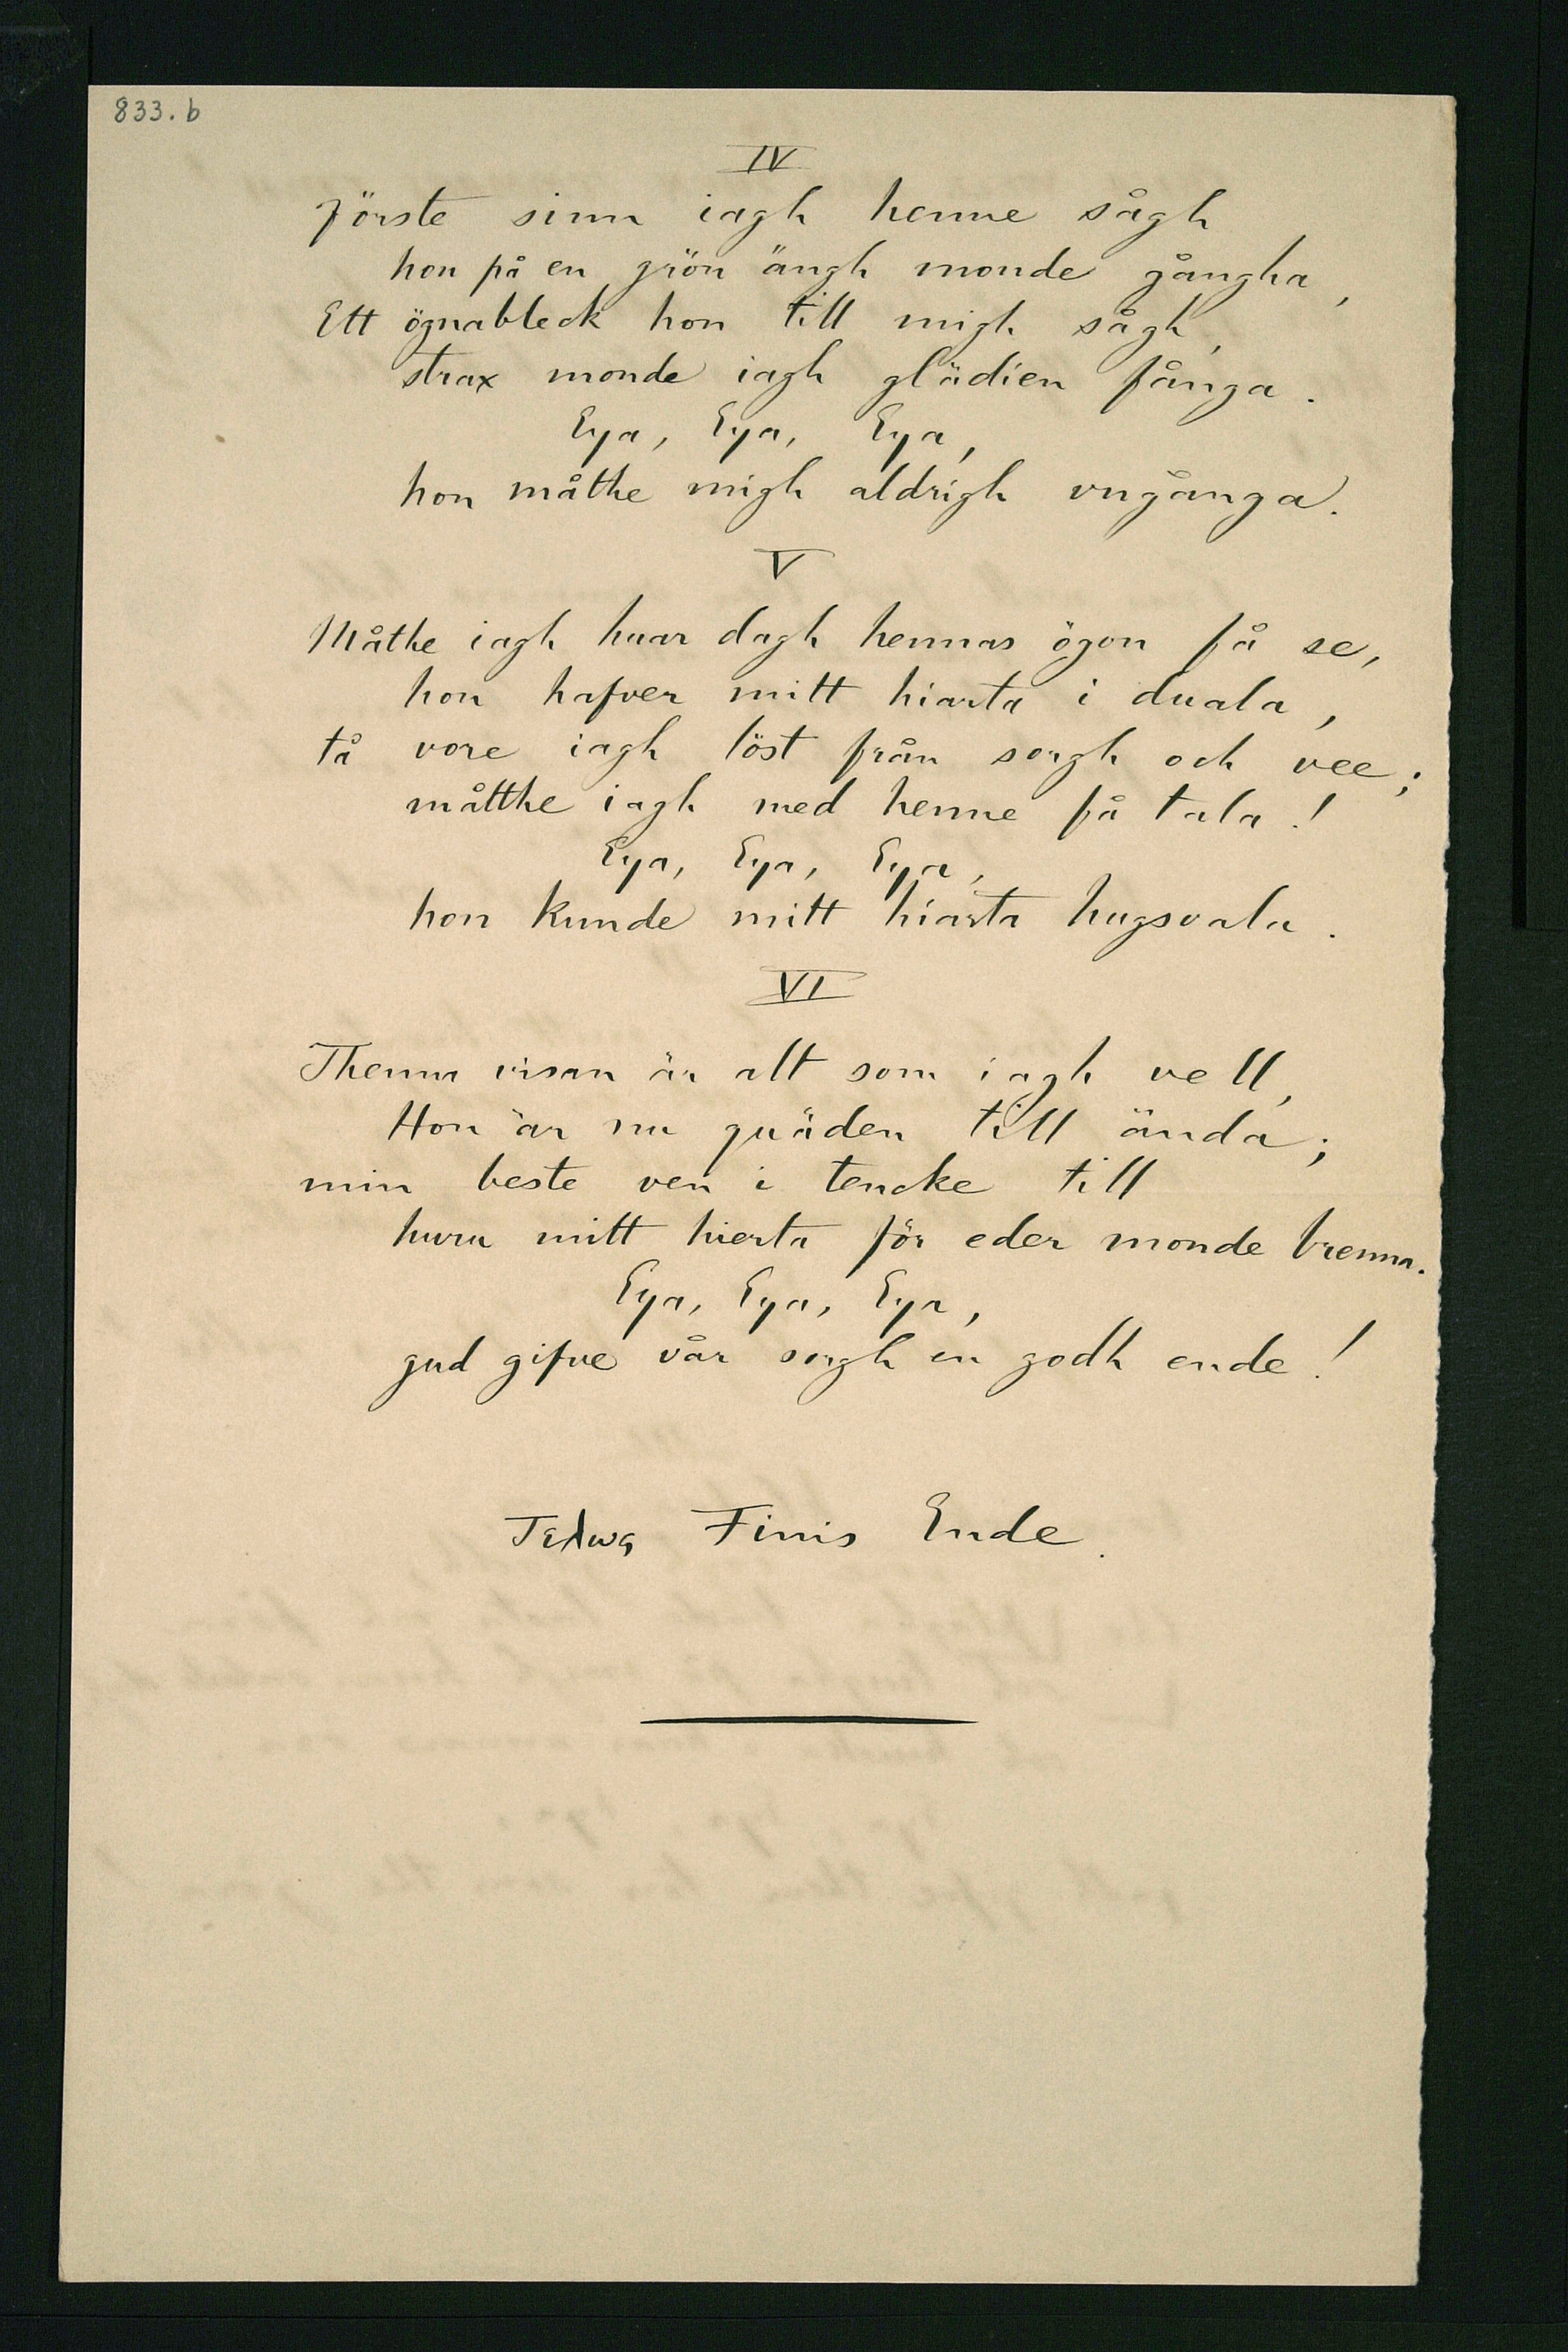 833.b
IV
förste sinn iagh henne sågh
hon på en grön ängh monde gångha,
Ett ögnableck hon till migh sågh,
strax monde iagh glädien fånga.
Eya, Eya, Eya,
hon måthe migh aldrigh vngånga.
V
Måthe iagh huar dagh hennas ögon få se,
hon hafver mitt hiarta i duala,
tå vore iagh löst från sorgh och vee;
måtthe iagh med henne få tala!
Eya, Eya, Eya,
hon kunde mitt hiarta hugsvala.
VI
Thenna visan är alt som iagh vell,
Hon är nu quäden till ända;
min beste ven i tencke till
huru mitt hierta för eder monde brenna.
Eya, Eya, Eya,
gud gifve vår sorgh en godh ende!
Τελως Finis Ende.